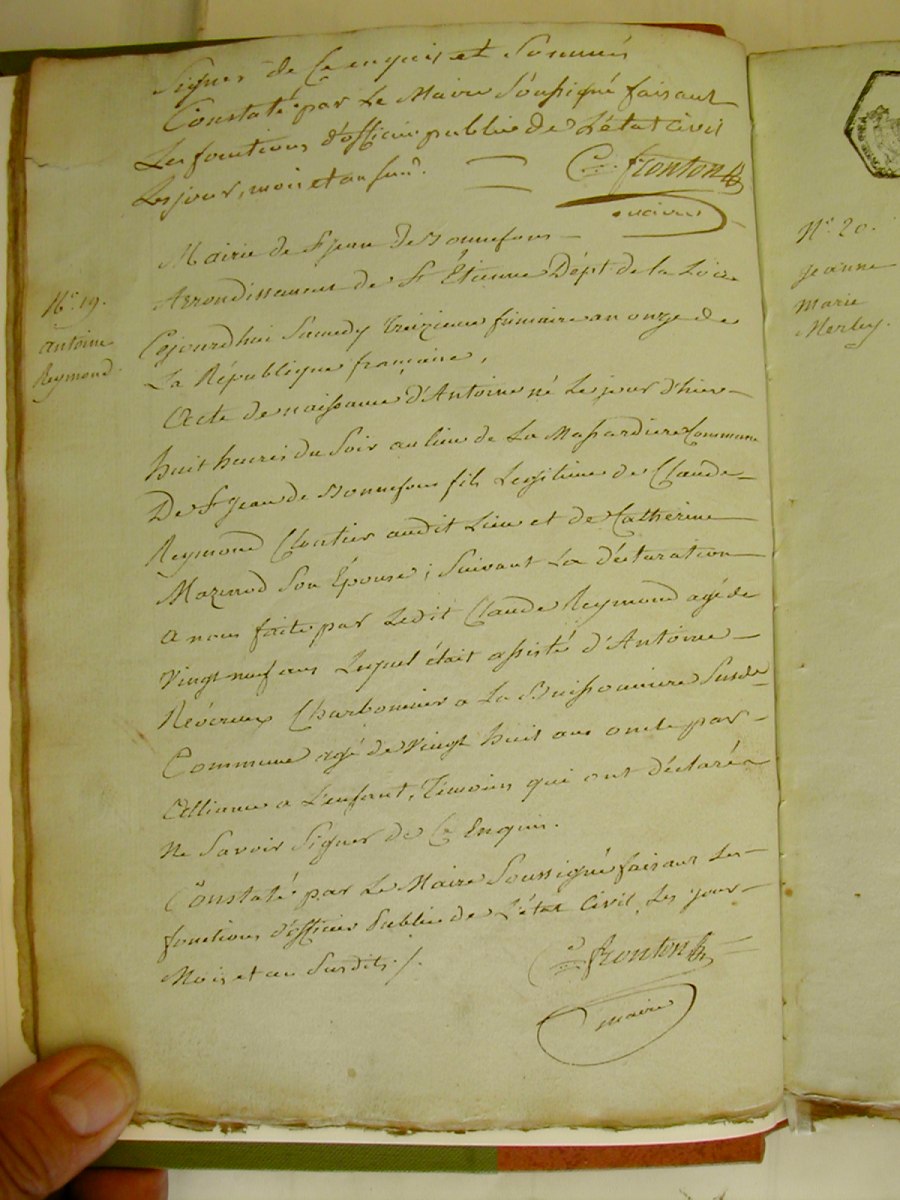 Signer de Ce enquis et Sommés
Constaté par Le Maire Soussigné faisant
Les fonctions d'officier public de L'état Civil
Les jour, mois et an susd.
Fronton
maire
Mairie de St jean de Bonnefons
Arrondissement de St Étienne Dépt de la Loire
N.º 19.
antoine
Reymond.
Cejourd'hui Samedy Treizieme frimaire an onze de
La République française,
Acte de naissance d'Antoine né Le jour d'hier
huit heures du Soir au lieu de La Massardiere Commune
De St Jean de Bonnefons fils Legitime de Claude
Reymond Cloutier audit Lieu et de Catherine
Mazenod Son Épouse ; Suivant La déclaration
a nous faite par Ledit Claude Reymond agé de
Vingt neuf ans Lequel était assisté d'Antoine
Révérieux Charbonnier a La Buissonniere Susde
Commune agé de Vingt huit ans oncle par
Alliance a L'enfant, Témoins qui ont déclaré a
Ne Savoir Signer de Ce Enquis.
Constaté par Le Maire Soussigné faisant Les
fonctions d'officier Public de L'état Civil, Les jour
Mois et an Susdits ./.
Fronton
maire
N.º 20.
jeanne
marie
Merley.